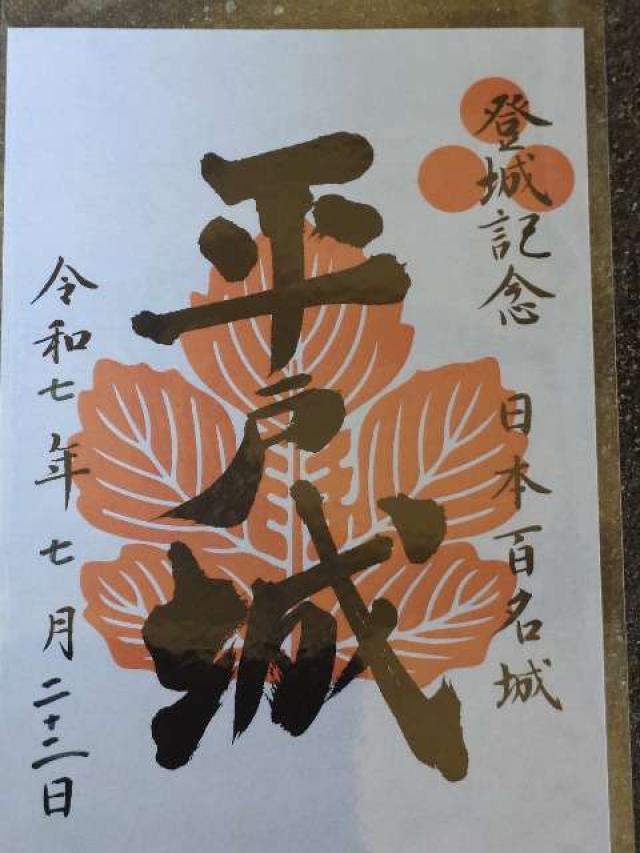 登城記念
日本百名城
平戸城
令和七年七月二十二日